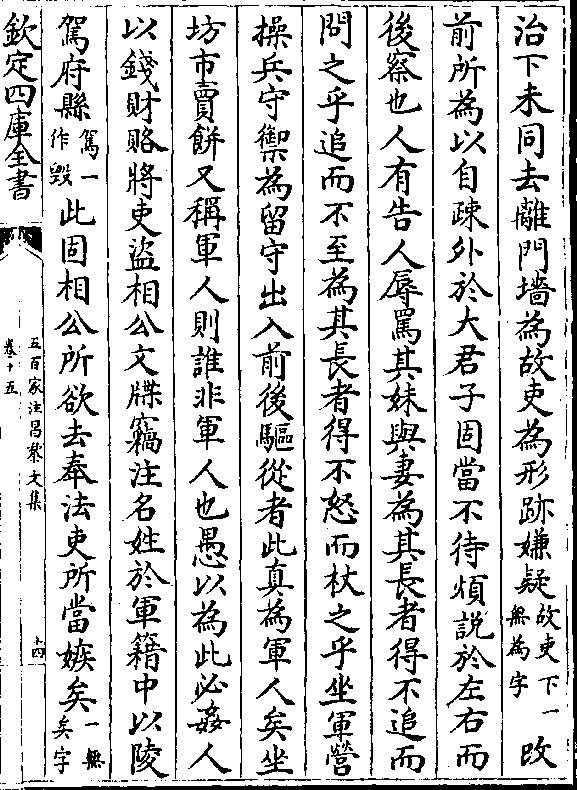 治下未同去離門墻為故吏為形跡嫌疑故吏下一無為字改
前所為以自疎外於大君子固當不待煩説於左右而
後察也人有告人辱罵其妹與妻為其長者得不追而
問之乎追而不至為其長者得不怒而杖之乎坐軍營
操兵守禦為留守出入前後驅從者此真為軍人矣坐
坊市賣餅又稱軍人則誰非軍人也愚以為此必姦人
以錢財賂將吏盜相公文牒竊注名姓於軍籍中以陵
駕府縣駕一作毀此固相公所欲去奉法吏所當嫉矣一無矣字
欽定四庫全書
五百家注昌黎文集
卷十五
十四